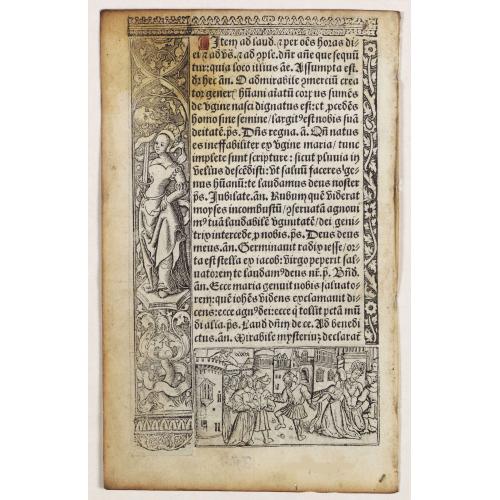 Item ad laud. ⁊ per oẽs horas di
ei ⁊ ad vẽs. ⁊ ad cõple. dñr añe que sequũ
tur: quia loco illius añe. Assumpta est.
dr hec añ. O admirabile cõmerciũ crea
tor gener⁹ hũani aĩatũ corpus sumẽs
de vgine nasci dignatus est: et ꝓcedẽs
homo sine semine / largit⁹ est nobis suã
deitatẽ. p̃s. Dñs regna. ã. Qñ natus
es ineffabiliter ex vgine maria / tunc
implete sunt scripture: sicut pluuia in
vellus descẽdisti: vt saluũ faceres ge⸗
nus hũanũ: te laudamus deus noster
p̃s. Jubilate. ãn. Rubum quẽ viderat
moyses incombustũ / cõseruatã agnoui
m⁹ tuã laudabilẽ vginitatẽ / dei geni⸗
trix intercede ꝓ nobis. p̃s. Deus deus
meus. ãn. Germinauit radix iesse / or⸗
ta est stella ex iacob: virgo peperit sal⸗
uatorem te laudam⁹ deus nr̃. p̃. Bñd.
ãn. Ecce maria genuit nobis saluato⸗
rem: quẽ iohẽs videns exclamauit di⸗
cens: ecce agn⁹ dei: ecce q̃ tollit pctã mũ
di alla. p̃s. Laud dñm de ce. Ad benedi
ctus. ãn. Mirabile mysteriuȝ declarat̃